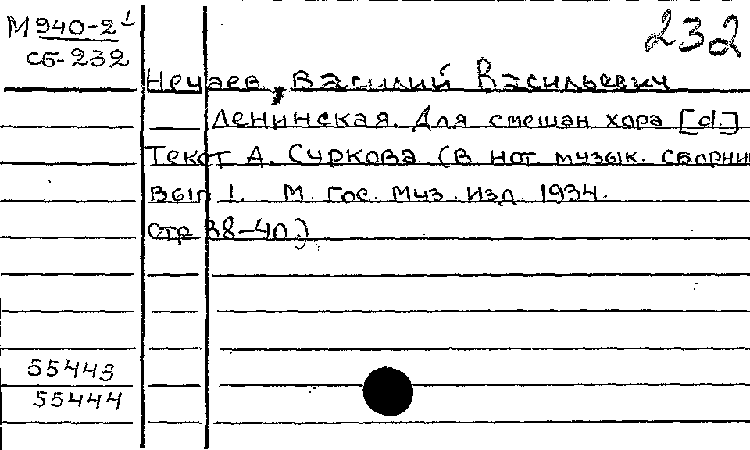 М 940-2¹
232
сб-232
Нечаев, Василий Васильевич
Ленинская. Для смешан хора [d.]
Текст А. Суркова (в нот музык. сборник
вып 1. М. Гос. Муз. изд. 1934.
стр 38-40.)
55443
55444